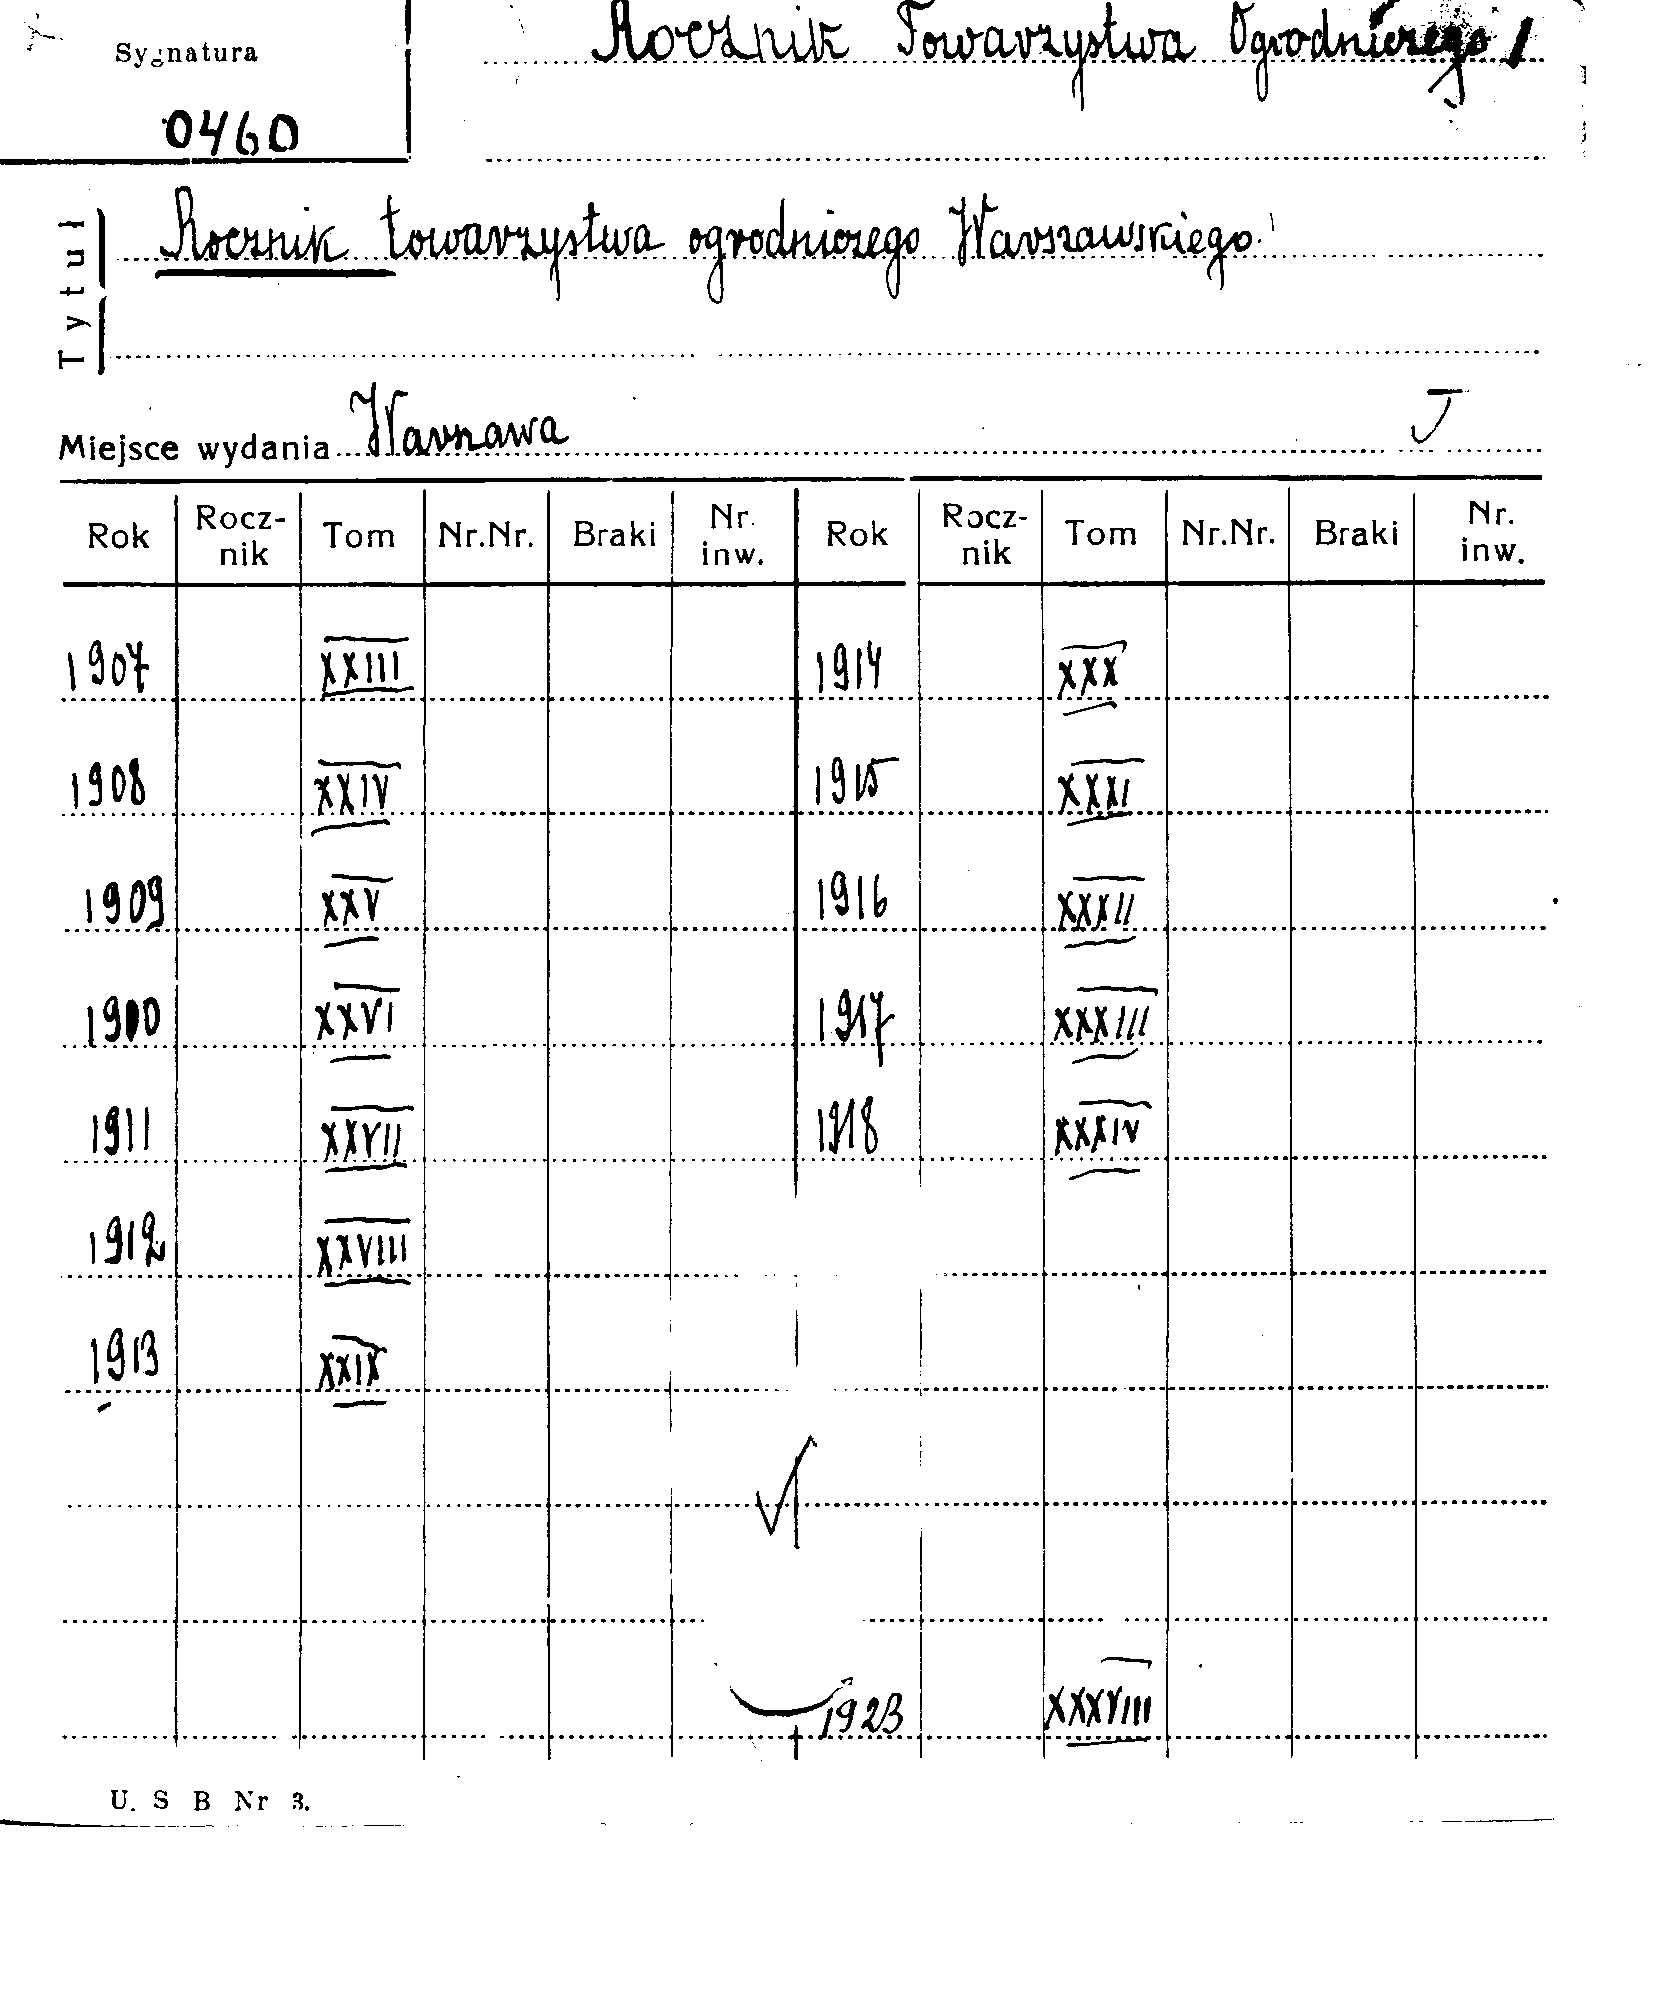 Rocznik Towarzystwa Ogrodniczego 1
Sygnatura
0460
Tytuł
Rocznik towarzystwa ogrodniczego Warszawskiego
Miejsce wydania Warszawa J
Rok Rocz-nik Tom Nr.Nr. Braki Nr. inw. Rok Rocz-nik Tom Nr.Nr. Braki Nr. inw.
1907 XXIII 1914 XXX
1908 XXIV 1915 XXXI
1909 XXV 1916 XXXII
1910 XXVI 1917 XXXIII
1911 XXVII 1918 XXXIV
1912 XXVIII
1913 XXIX
1923 XXXVIII
U. S B Nr 3.